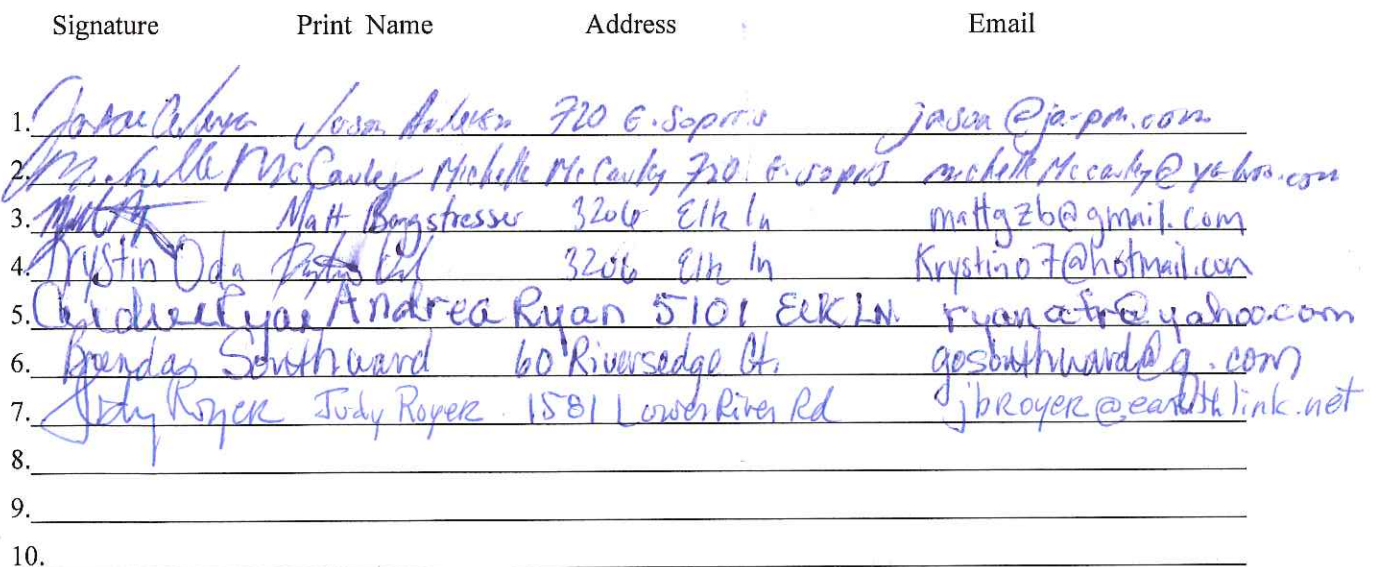 Signature Print Name Address Email
1. Jason 720 E. Sopris jason@ja-pm.com
2. Michelle McCauley Michelle McCauley 720 E. Sopris michelleMccauley@yahoo.com
3. Matt 3206 Elk ln mattgzb@gmail.com
4. Krystin Oda 3206 Elk ln Krystino7@hotmail.com
5. Andrea Ryan Andrea Ryan 5101 ELK LN. ryanafr@yahoo.com
6. Brenda Southward 60 Riversedge Ct. gosouthward@g.com
7. Judy Royer Judy Royer 1581 Lower River Rd jbroyer@earthlink.net
8.
9.
10.